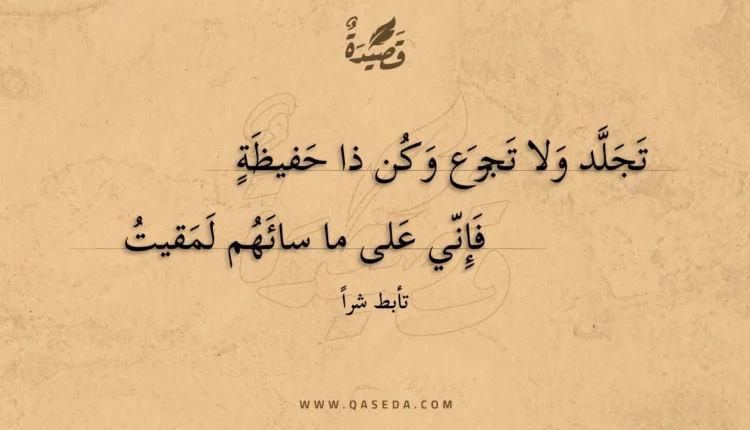 قَصِيدَةٌ
تَجَلَّد وَلا تَجزَع وَكُن ذا حَفيظَةٍ
فَإِنّي عَلى ما سائَهُم لَمَقيتُ
تأبط شراً
WWW.QASEDA.COM